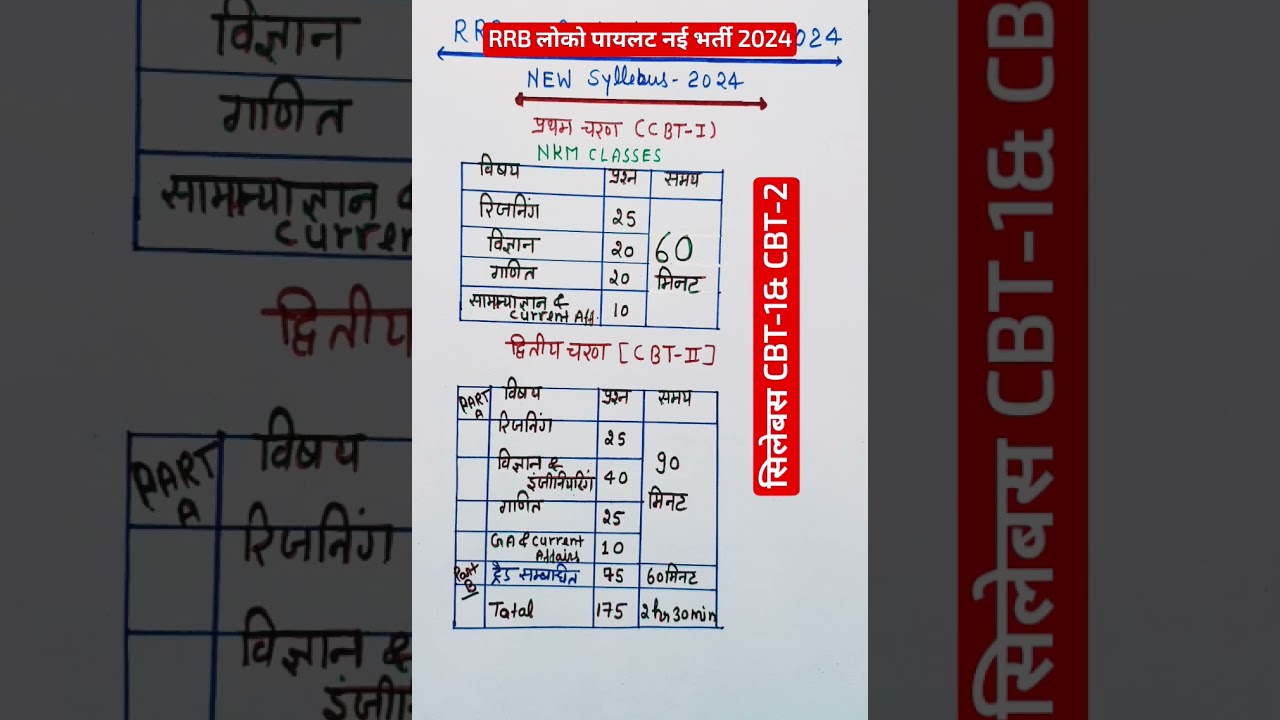 RRB लोको पायलट नई भर्ती 2024
NEW Syllebus-2024
प्रथम चरण (CBT-I)
NKM CLASSES
विषय प्रश्न समय
रिजनिंग 25
विज्ञान 20
गणित 20
60 मिनट
सामान्य ज्ञान & Current Aff. 10
द्वितीय चरण [CBT-II]
PART A विषय प्रश्न समय
रिजनिंग 25
विज्ञान & इंजीनियरिंग 40
90 मिनट
गणित 25
GA & Current Affairs 10
Part B ट्रैड सम्बन्धित 75 60 मिनट
Total 175 2 hr 30 min
सिलेबस CBT-1& CBT-2
विज्ञान
गणित
सामान्य ज्ञान
द्वितीय
PART A विषय
रिजनिंग
विज्ञान &
सिलेबस CBT-1& CB